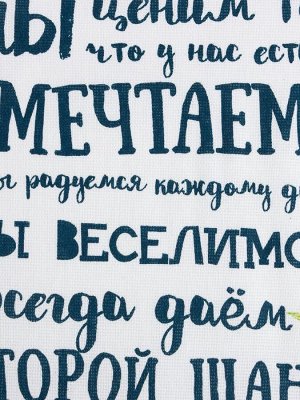 Ы ценим т
что у нас ест
МЕЧТАЕМ
ы радуемся каждому д
Ы ВЕСЕЛИМС
всегда даём
ТОРОЙ ШАН